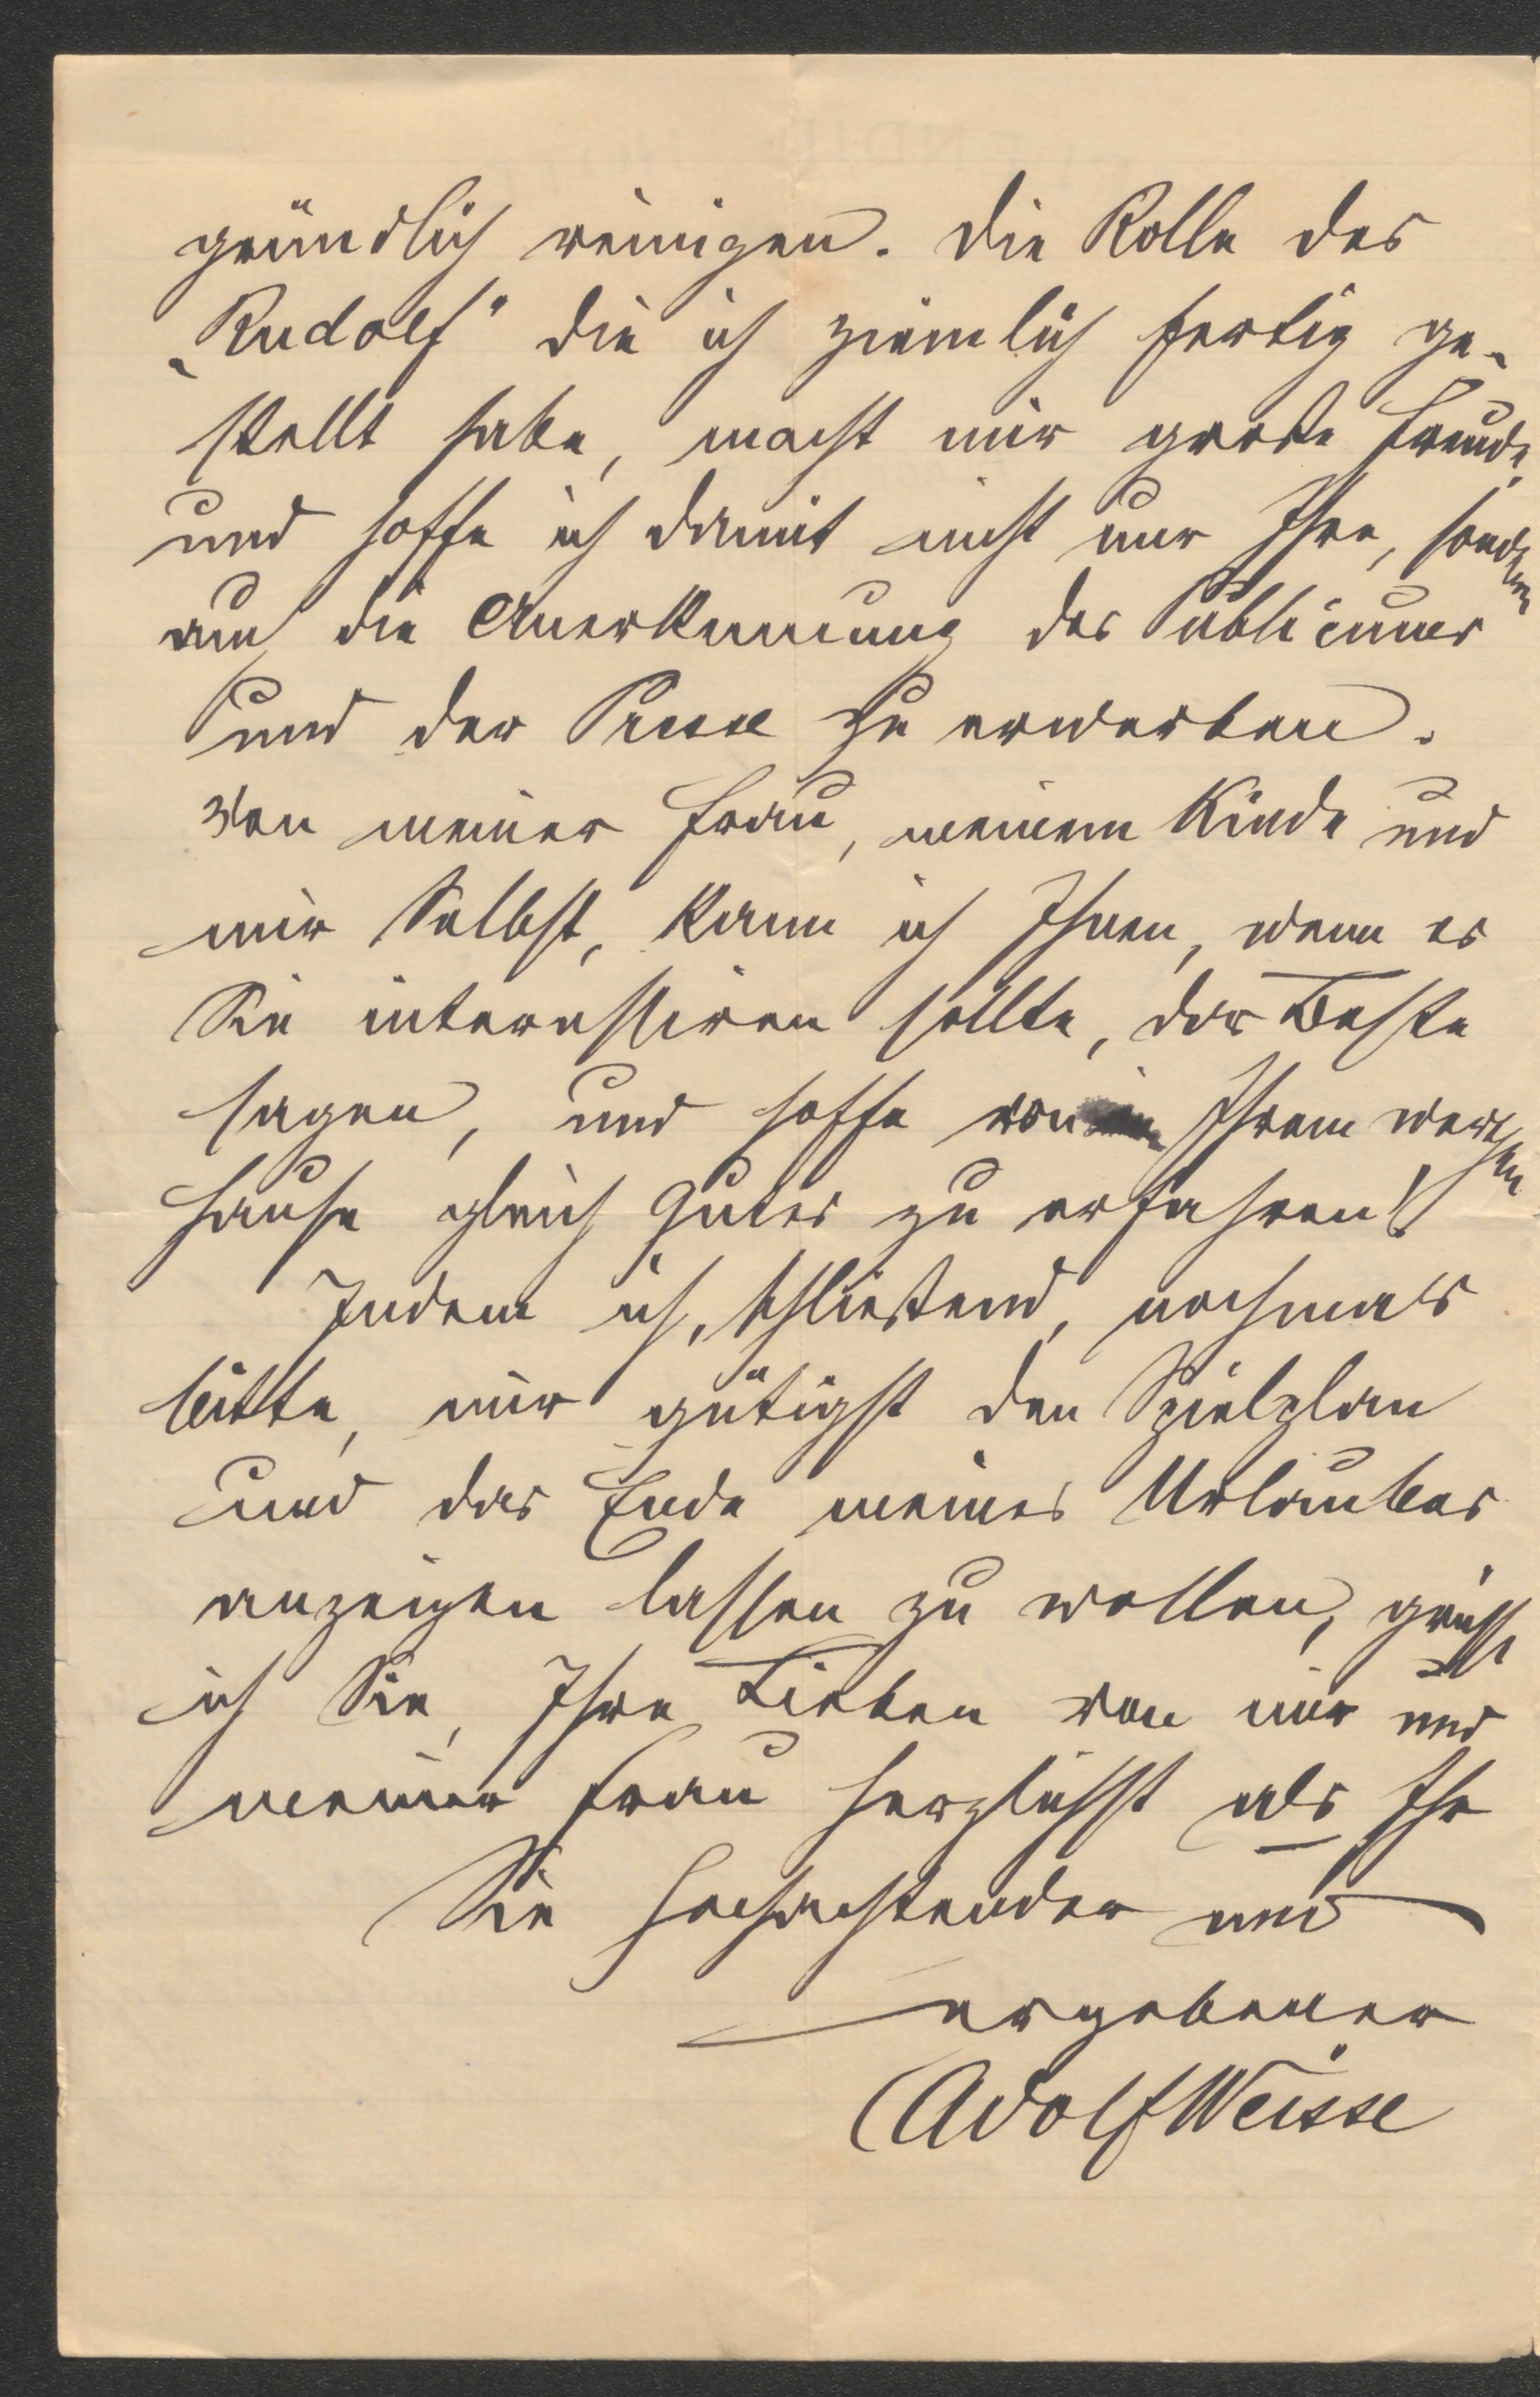 gründlich reinigen. Die Rolle des
„Rudolf" die ich ziemlich fertig ge-
stellt habe, macht mir große Freude,
und hoffe ich damit nicht nur Ihre, sondern
auch die Anerkennung des Publicums
und der Presse zu erwerben.
Von meiner Frau, meinem Kinde und
mir Selbst, kann ich Ihnen, wenn es
Sie interessiren sollte, das Beste
sagen, und hoffe von Ihrem werthen
Hause gleich Gutes zu erfahren!
Indem ich, schließend, nochmals
bitte, mir gütigst den Spielplan
und das Ende meines Urlaubes
anzeigen lassen zu wollen, grüße
ich Sie, Ihre Lieben von mir und
meiner Frau herzlichst als Ihr
Sie hochachtender und
ergebener
Adolf Weisse